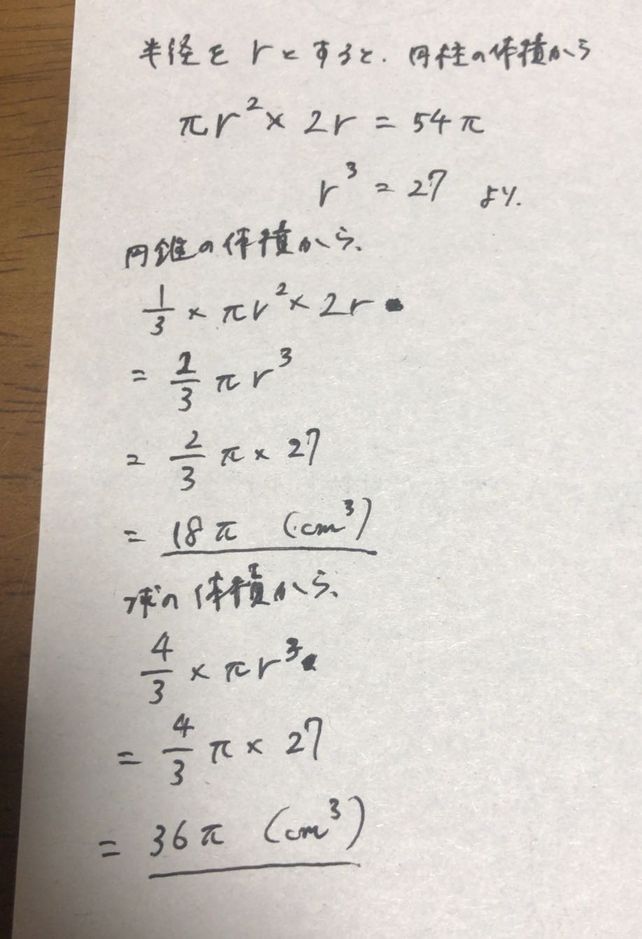 半径を r とすると、円柱の体積から
πr² × 2r = 54π
r³ = 27 より、
円錐の体積から、
1/3 × πr² × 2r
= 2/3 πr³
= 2/3 π × 27
= 18π (cm³)
球の体積から、
4/3 × πr³
= 4/3 π × 27
= 36π (cm³)